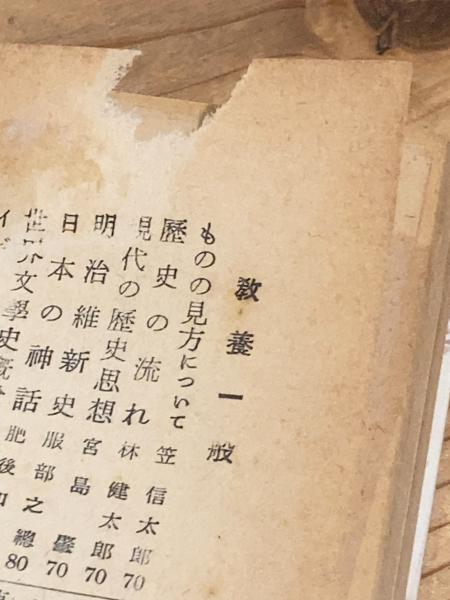 敎養一般
ものの見方について 笠信太郎 70
歷史の流れ 林健太郎 70
現代の歷史思想 宮島肇 70
明治維新史 服部之總 80
日本の神話 肥後和
世界文學史概